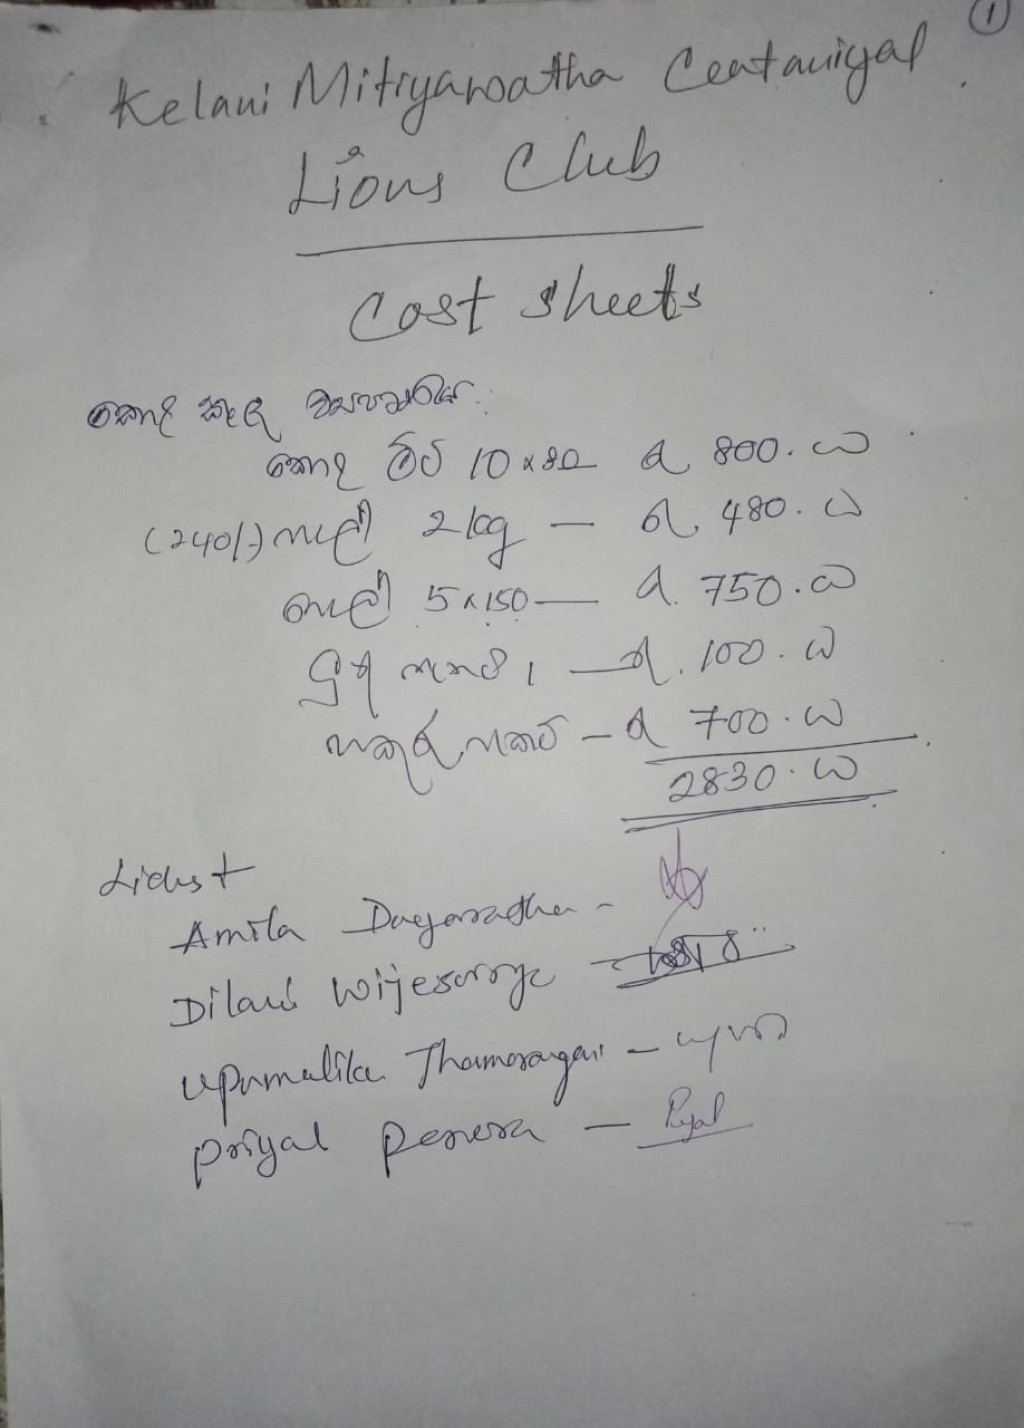 ①
Kelani Mitiyawatha Centauiyal
Lions Club
Cost Sheets
කොළ කැඳ ව්‍යාපෘතිය.
කොළ මිටි 10 x 80 රු 800.00
(240/-) හාල් 2kg — රු 480.00
පොල් 5 x 150 — රු. 750.00
ලුණු පැකට් 1 — රු. 100.00
හකුරු පැකට් — රු 700.00
2830.00
Amila Dayaratha -
Dilani Wijesoorya
Upamalika Thamarangani -
Priyal Perera — Riyal